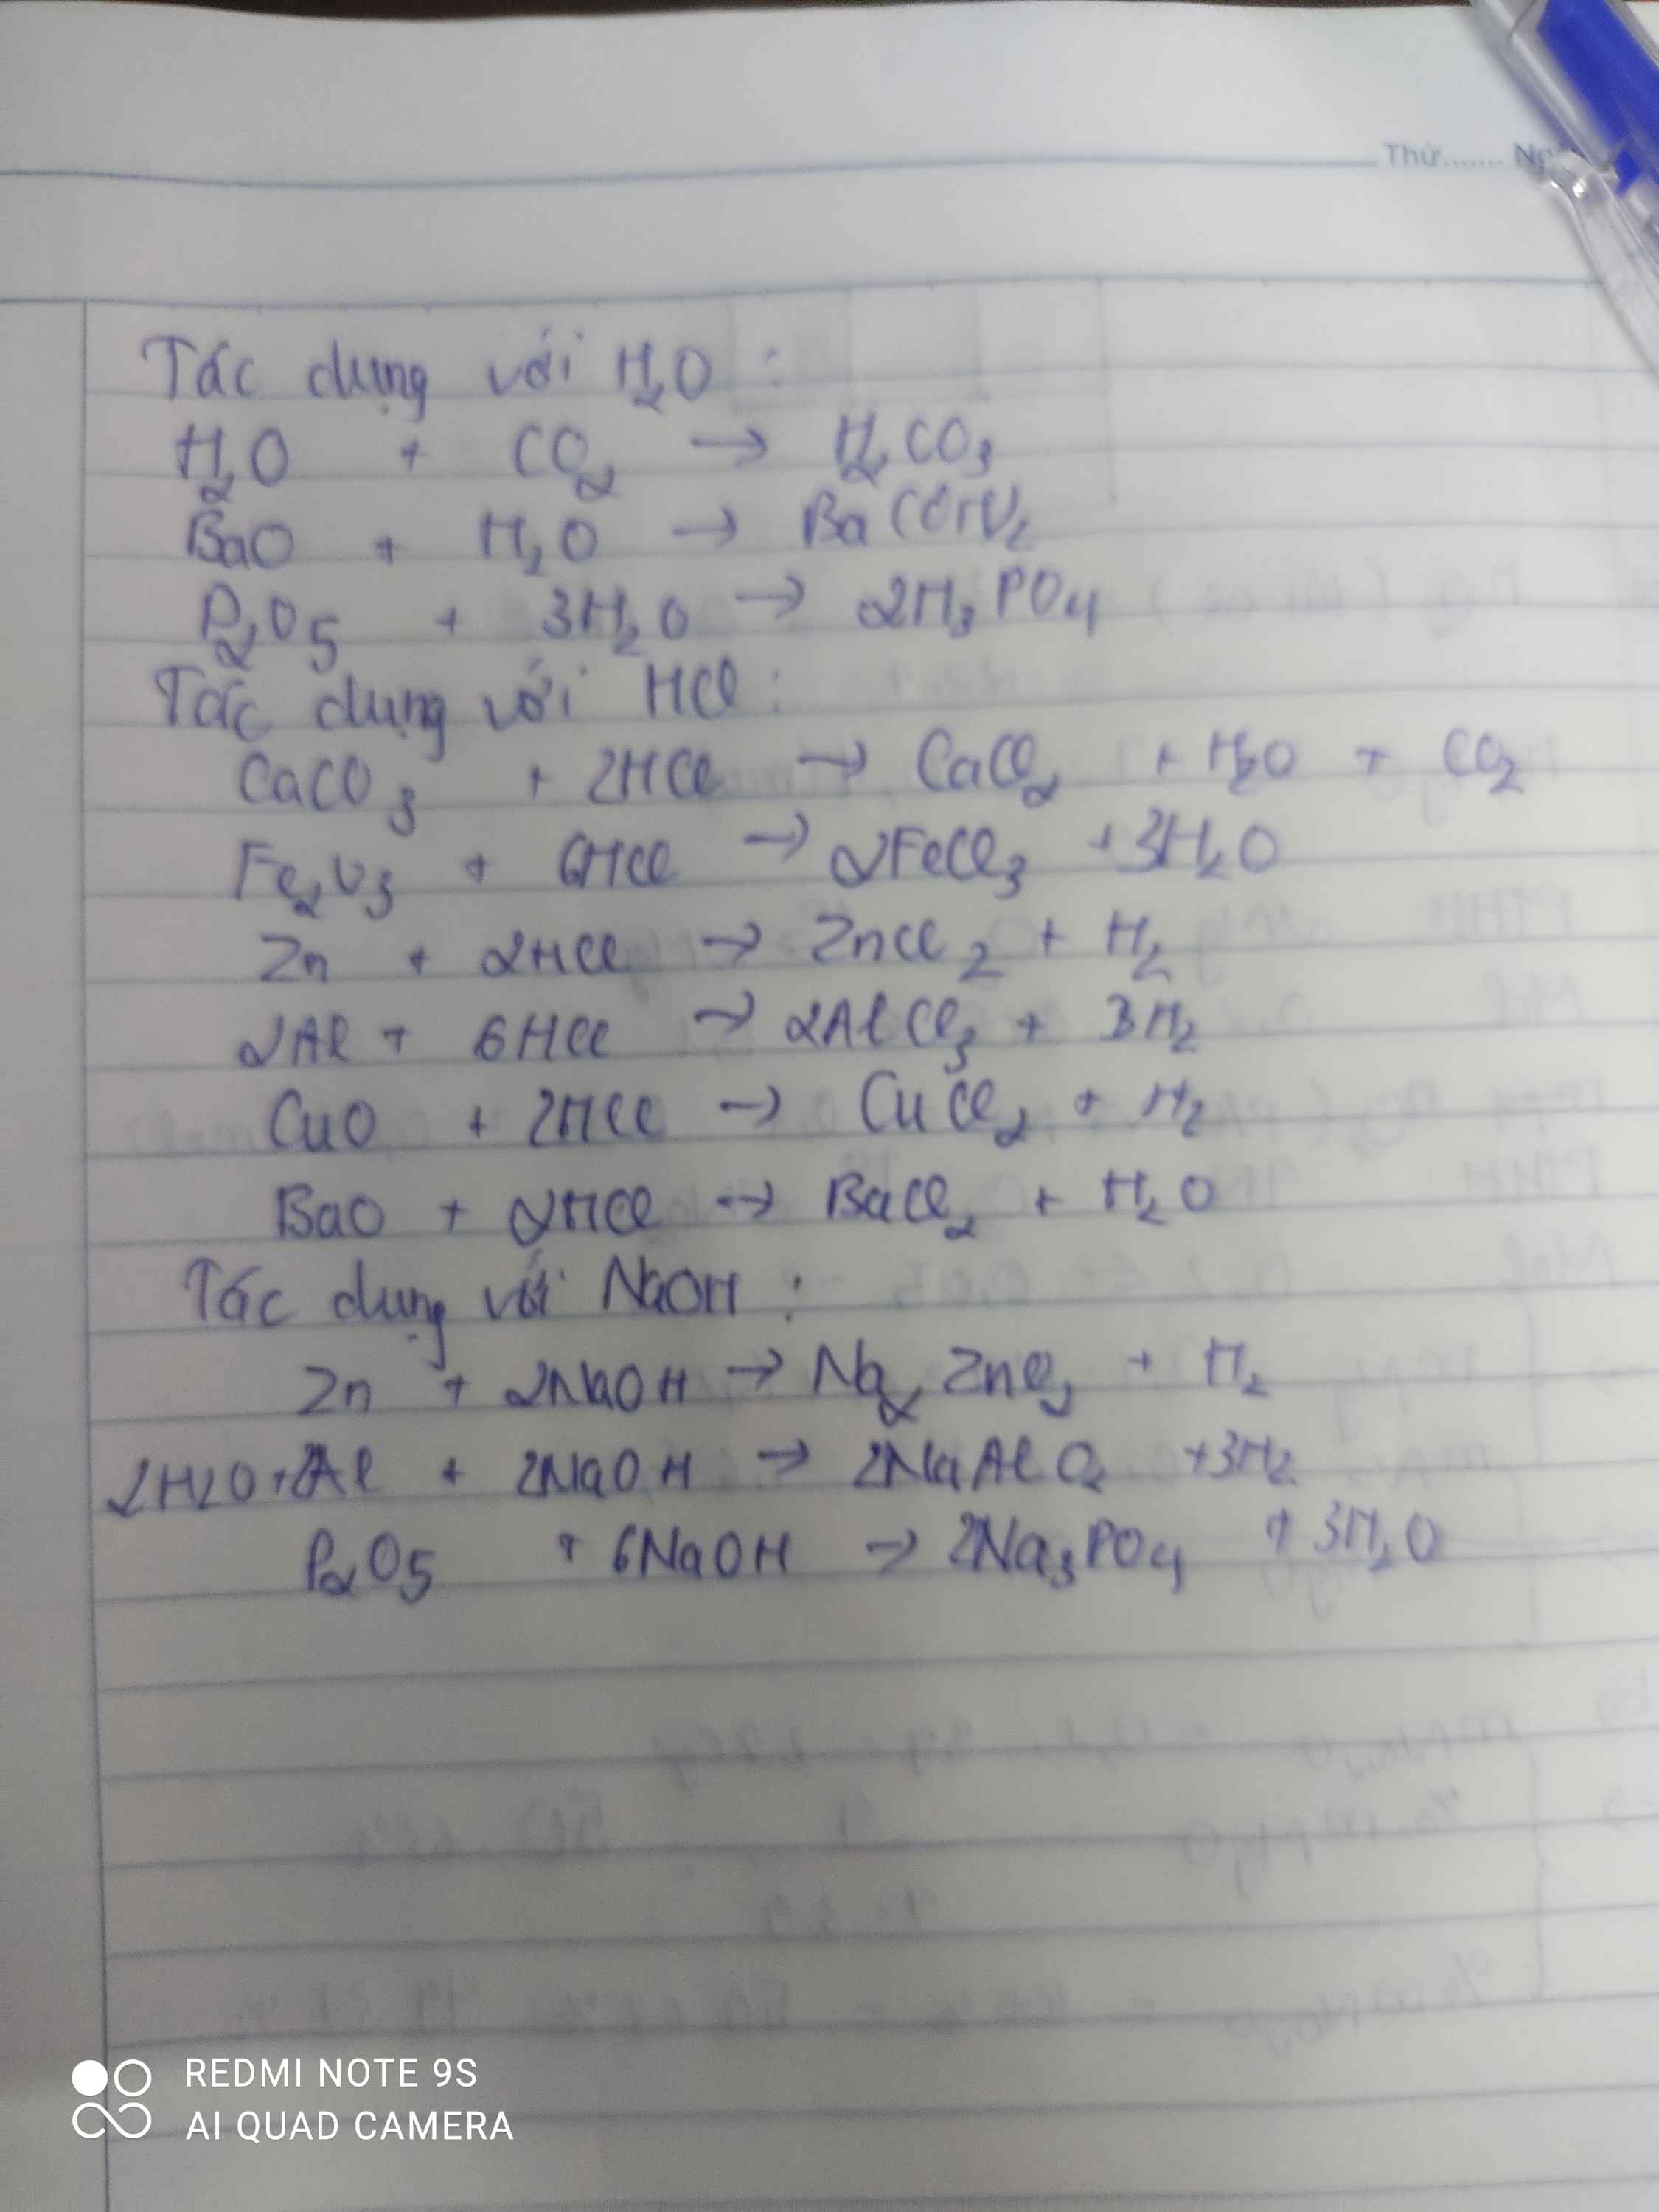 Thứ....... Ng
Tác dụng với H2O :
H2O + CO2 → H2CO3
BaO + H2O → Ba(OH)2
P2O5 + 3H2O → 2H3PO4
Tác dụng với HCl :
CaCO3 + 2HCl → CaCl2 + H2O + CO2
Fe2O3 + 6HCl → 2FeCl3 + 3H2O
Zn + 2HCl → ZnCl2 + H2
2Al + 6HCl → 2AlCl3 + 3H2
CuO + 2HCl → CuCl2 + H2
BaO + 2HCl → BaCl2 + H2O
Tác dụng với NaOH :
Zn + 2NaOH → Na2ZnO2 + H2
2H2O + 2Al + 2NaOH → 2NaAlO2 + 3H2
P2O5 + 6NaOH → 2Na3PO4 + 3H2O
REDMI NOTE 9S
AI QUAD CAMERA